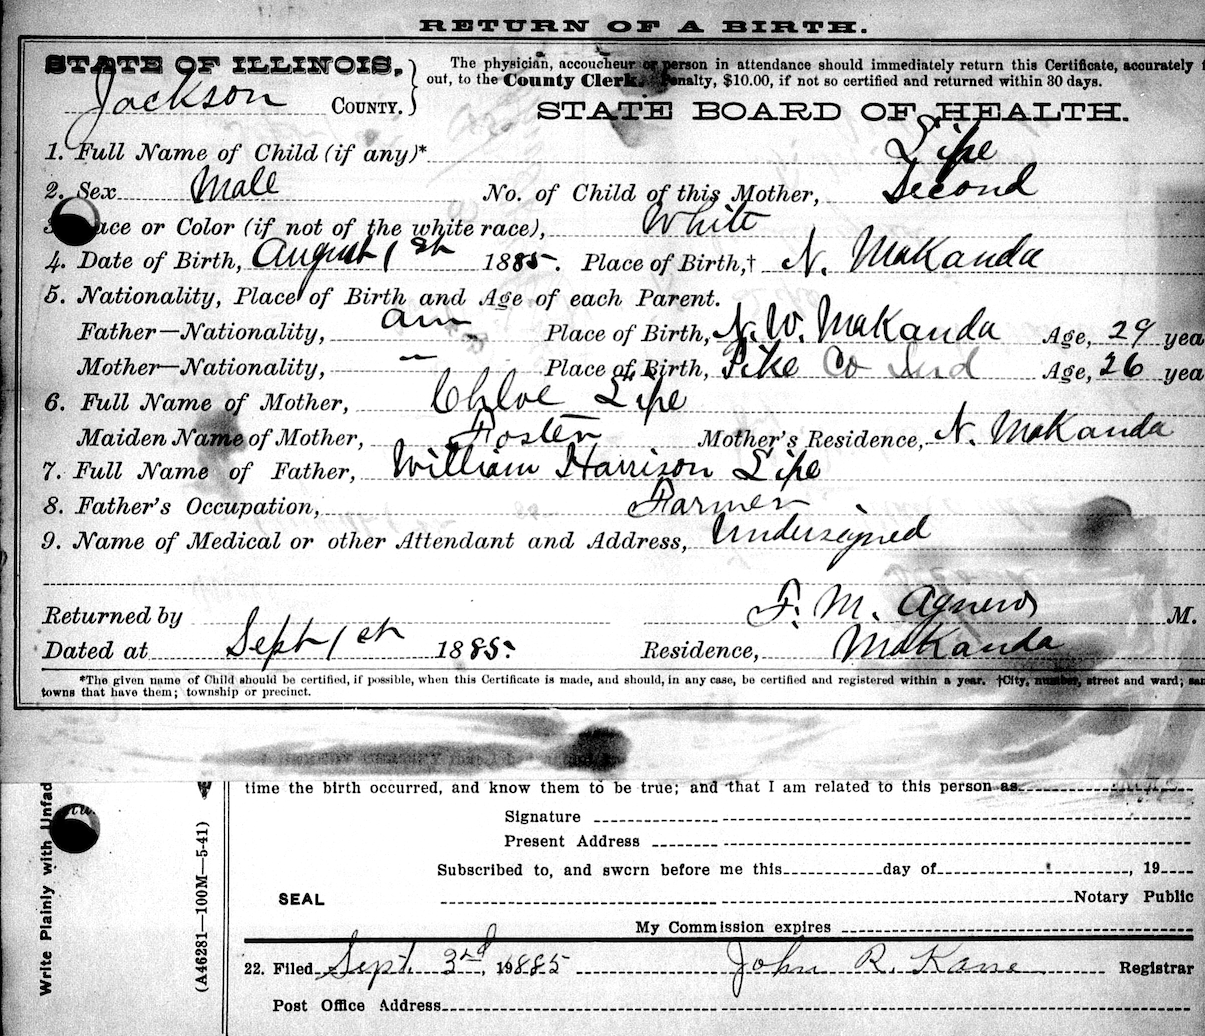 RETURN OF A BIRTH.
STATE OF ILLINOIS,
Jackson COUNTY.
The physician, accoucheur or person in attendance should immediately return this Certificate, accurately
out, to the County Clerk. Penalty, $10.00, if not so certified and returned within 30 days.
STATE BOARD OF HEALTH.
1. Full Name of Child (if any)* Lipe
2. Sex Male No. of Child of this Mother, Second
3. Race or Color (if not of the white race), White
4. Date of Birth, August 1st 1885. Place of Birth,† N. Makanda
5. Nationality, Place of Birth and Age of each Parent.
Father—Nationality, am Place of Birth, N. W. Makanda Age, 29 yea
Mother—Nationality, " Place of Birth, Pike Co Ind Age, 26 yea
6. Full Name of Mother, Chloe Lipe
Maiden Name of Mother, Foster Mother's Residence, N. Makanda
7. Full Name of Father, William Harrison Lipe
8. Father's Occupation, Farmer
9. Name of Medical or other Attendant and Address, Undersigned
Returned by F. M. Agnew M.
Dated at Sept 1st 1885. Residence, Makanda
*The given name of Child should be certified, if possible, when this Certificate is made, and should, in any case, be certified and registered within a year. †City, number, street and ward;
towns that have them; township or precinct.
time the birth occurred, and know them to be true; and that I am related to this person as
Signature
Present Address
Subscribed to, and sworn before me this day of , 19
SEAL Notary Public
My Commission expires
22. Filed Sept. 3rd, 1885 John R. Kane Registrar
Post Office Address
Write Plainly with Unfad
(A46281—100M—5-41)